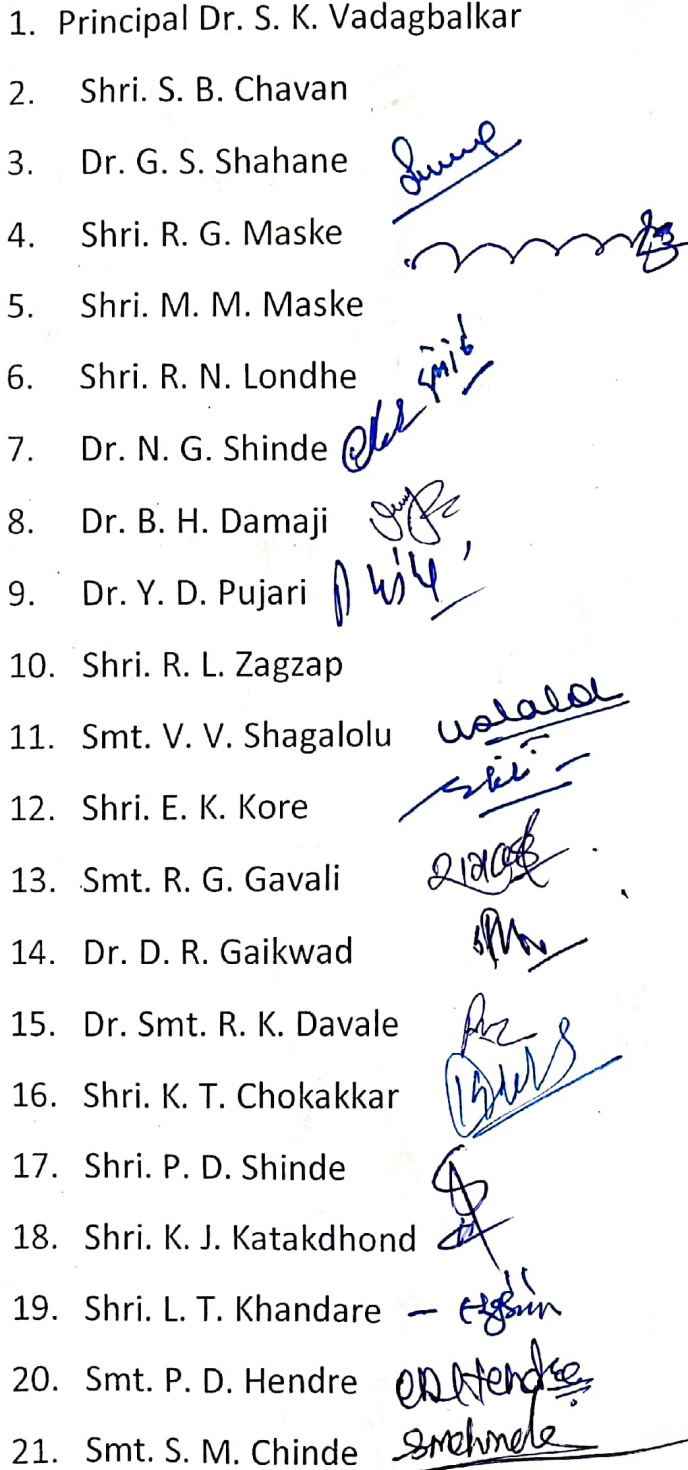 1. Principal Dr. S. K. Vadagbalkar
2. Shri. S. B. Chavan
3. Dr. G. S. Shahane
4. Shri. R. G. Maske
5. Shri. M. M. Maske
6. Shri. R. N. Londhe
7. Dr. N. G. Shinde
8. Dr. B. H. Damaji
9. Dr. Y. D. Pujari
10. Shri. R. L. Zagzap
11. Smt. V. V. Shagalolu
12. Shri. E. K. Kore
13. Smt. R. G. Gavali
14. Dr. D. R. Gaikwad
15. Dr. Smt. R. K. Davale
16. Shri. K. T. Chokakkar
17. Shri. P. D. Shinde
18. Shri. K. J. Katakdhond
19. Shri. L. T. Khandare –
20. Smt. P. D. Hendre PDHendre
21. Smt. S. M. Chinde Smchinde